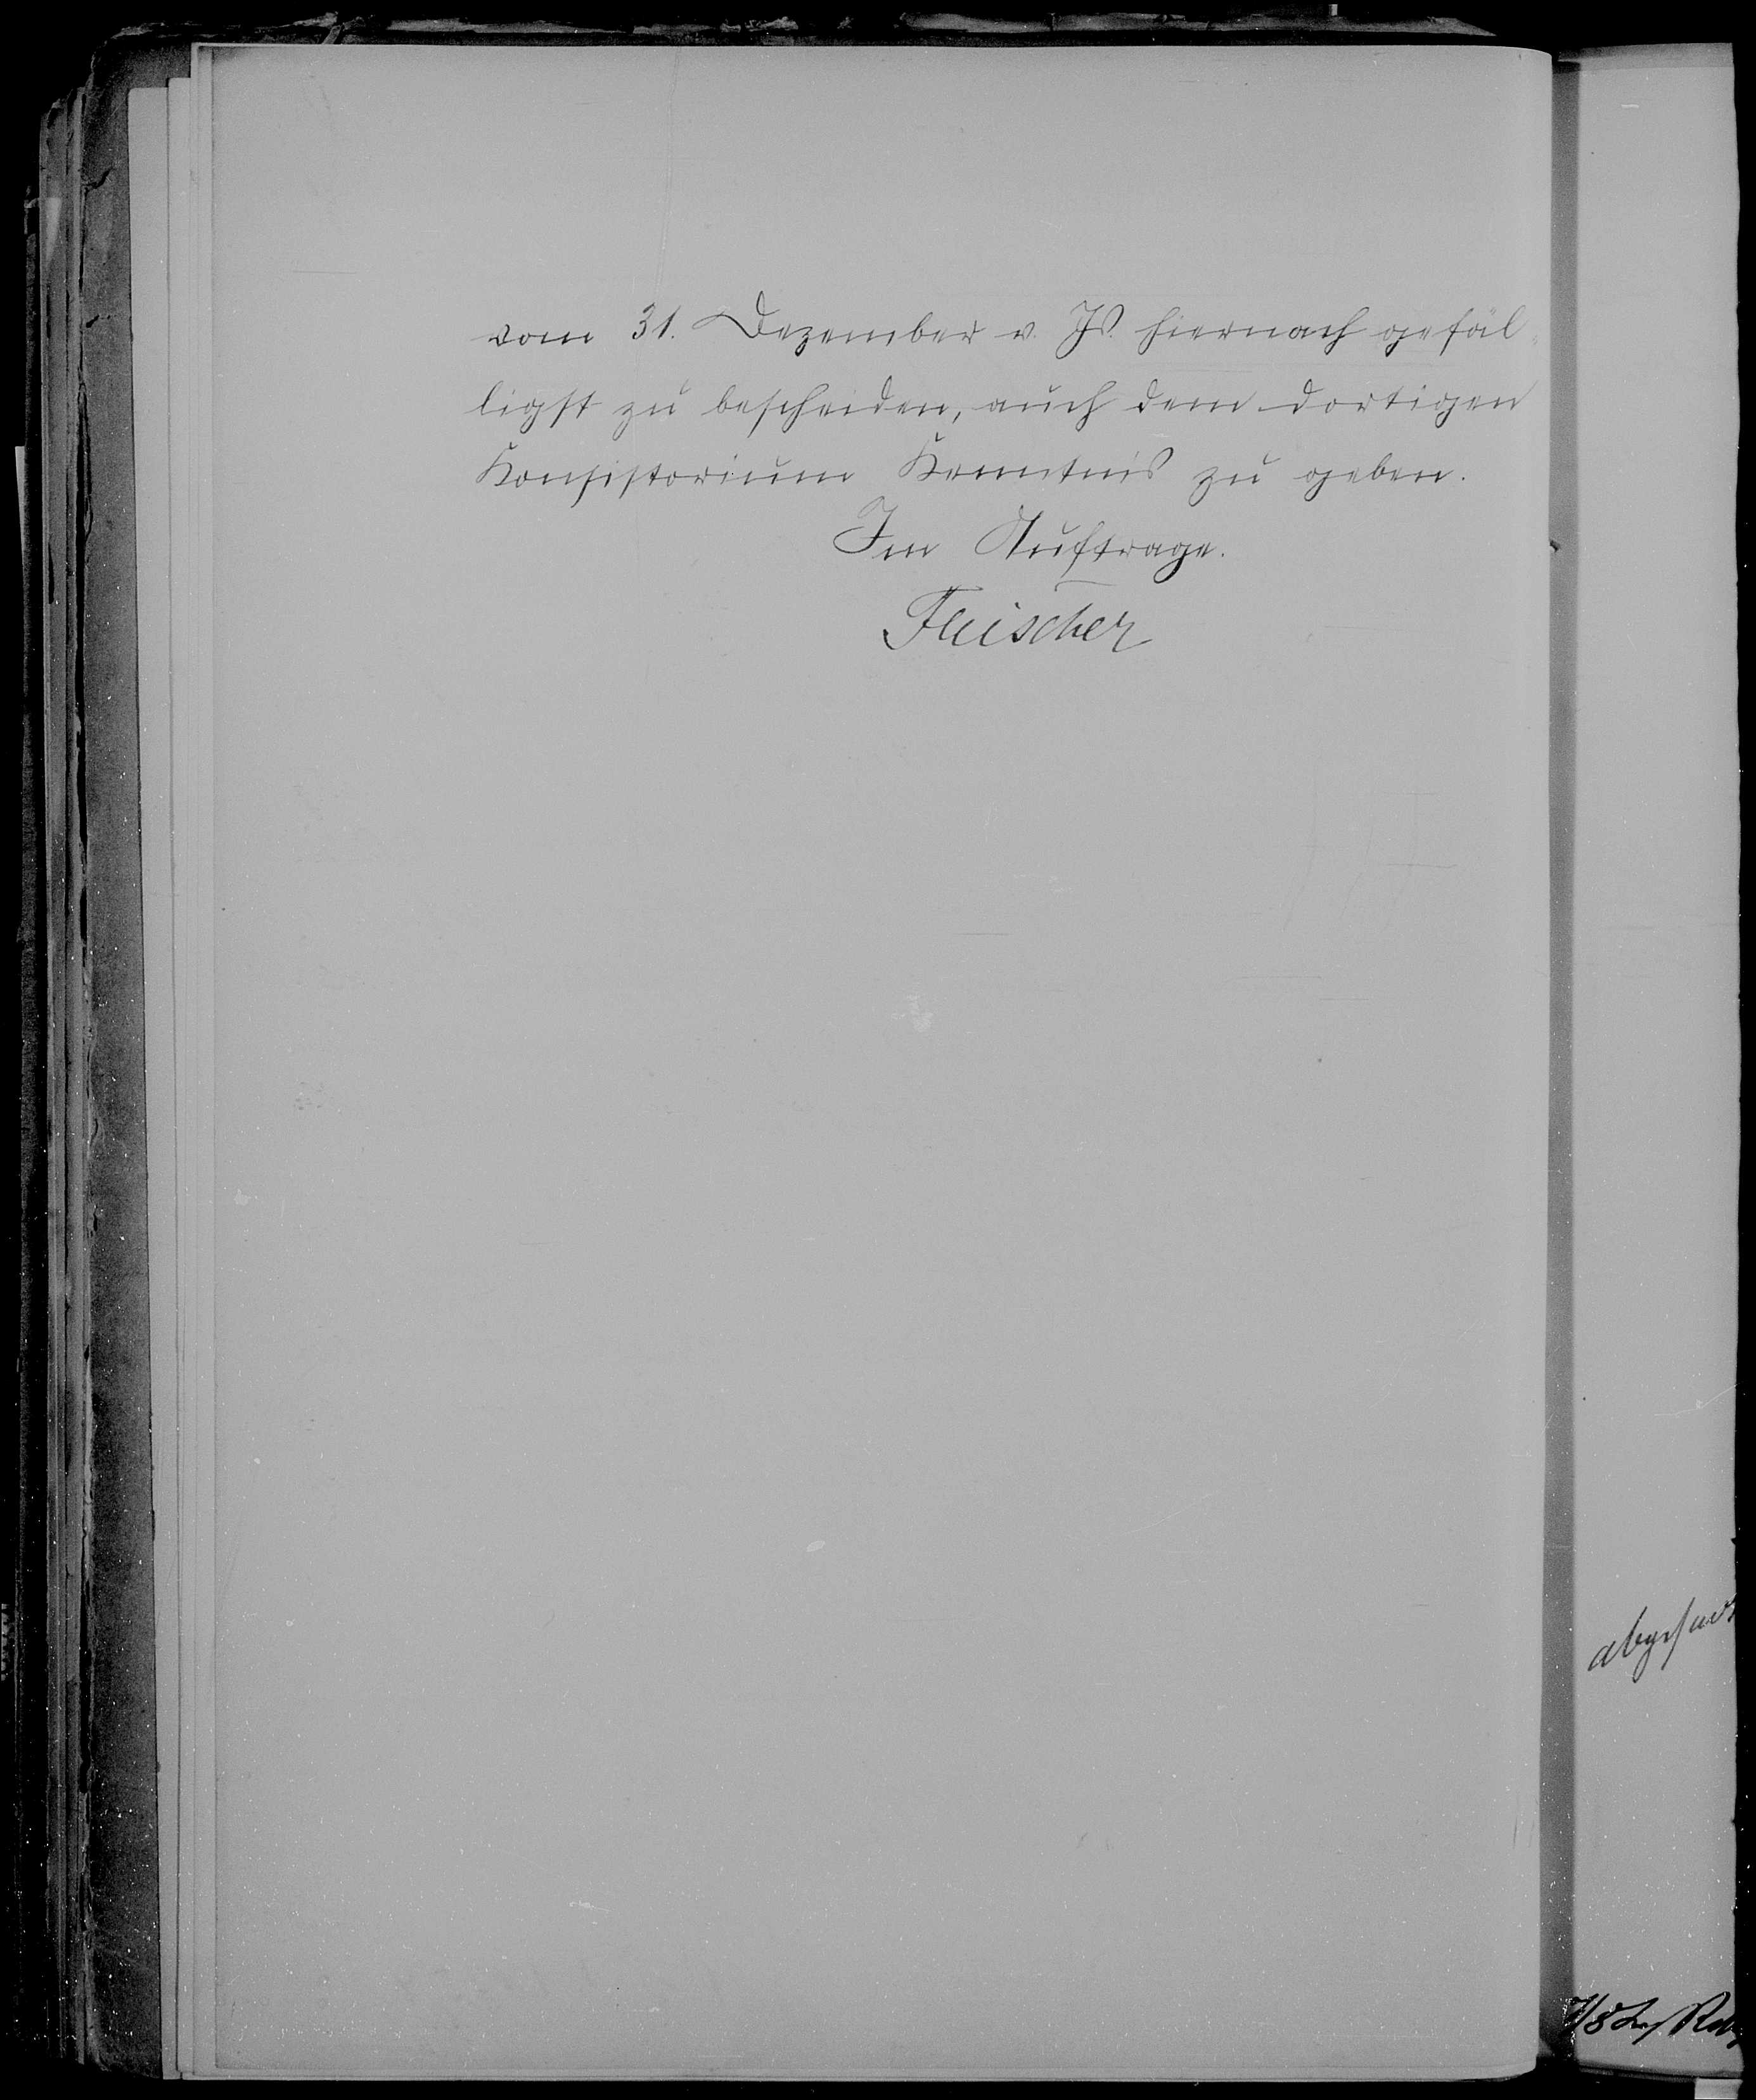 vom 31. Dezember v. Js. hiernach gefäl-
ligst zu bescheiden, auch dem dortigen
Konsistorium Kenntnis zu geben.
Im Auftrage.
Fleischer